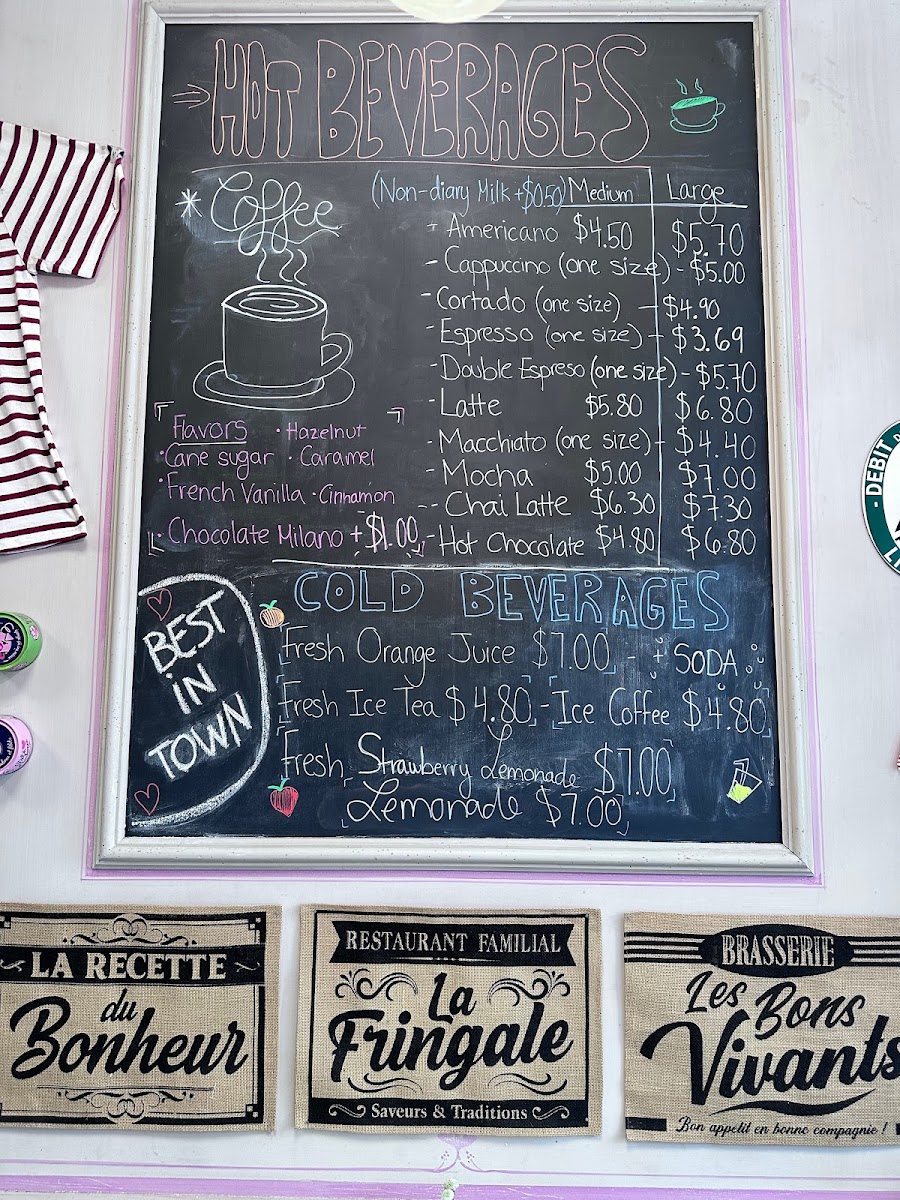 HOT BEVERAGES
Coffee
(Non-diary Milk +$0.50) Medium Large
- Americano $4.50 $5.70
- Cappuccino (one size) - $5.00
- Cortado (one size) - $4.90
- Espresso (one size) - $3.69
- Double Espreso (one size) - $5.70
- Latte $5.80 $6.80
- Macchiato (one size) - $4.40
- Mocha $5.00 $7.00
- Chai Latte $6.30 $7.30
- Hot Chocolate $4.80 $6.80
Flavors · Hazelnut
· Cane sugar · Caramel
· French Vanilla · Cinnamon
· Chocolate Milano + $1.00
COLD BEVERAGES
Fresh Orange Juice $7.00 - SODA
Fresh Ice Tea $4.80 - Ice Coffee $4.80
Fresh Strawberry Lemonade $7.00
Lemonade $7.00
BEST
iN
TOWN
DEBIT
LA RECETTE
du
Bonheur
RESTAURANT FAMILIAL
La
Fringale
Saveurs & Traditions
BRASSERIE
Les Bons
Vivants
Bon appetit en bonne compagnie !